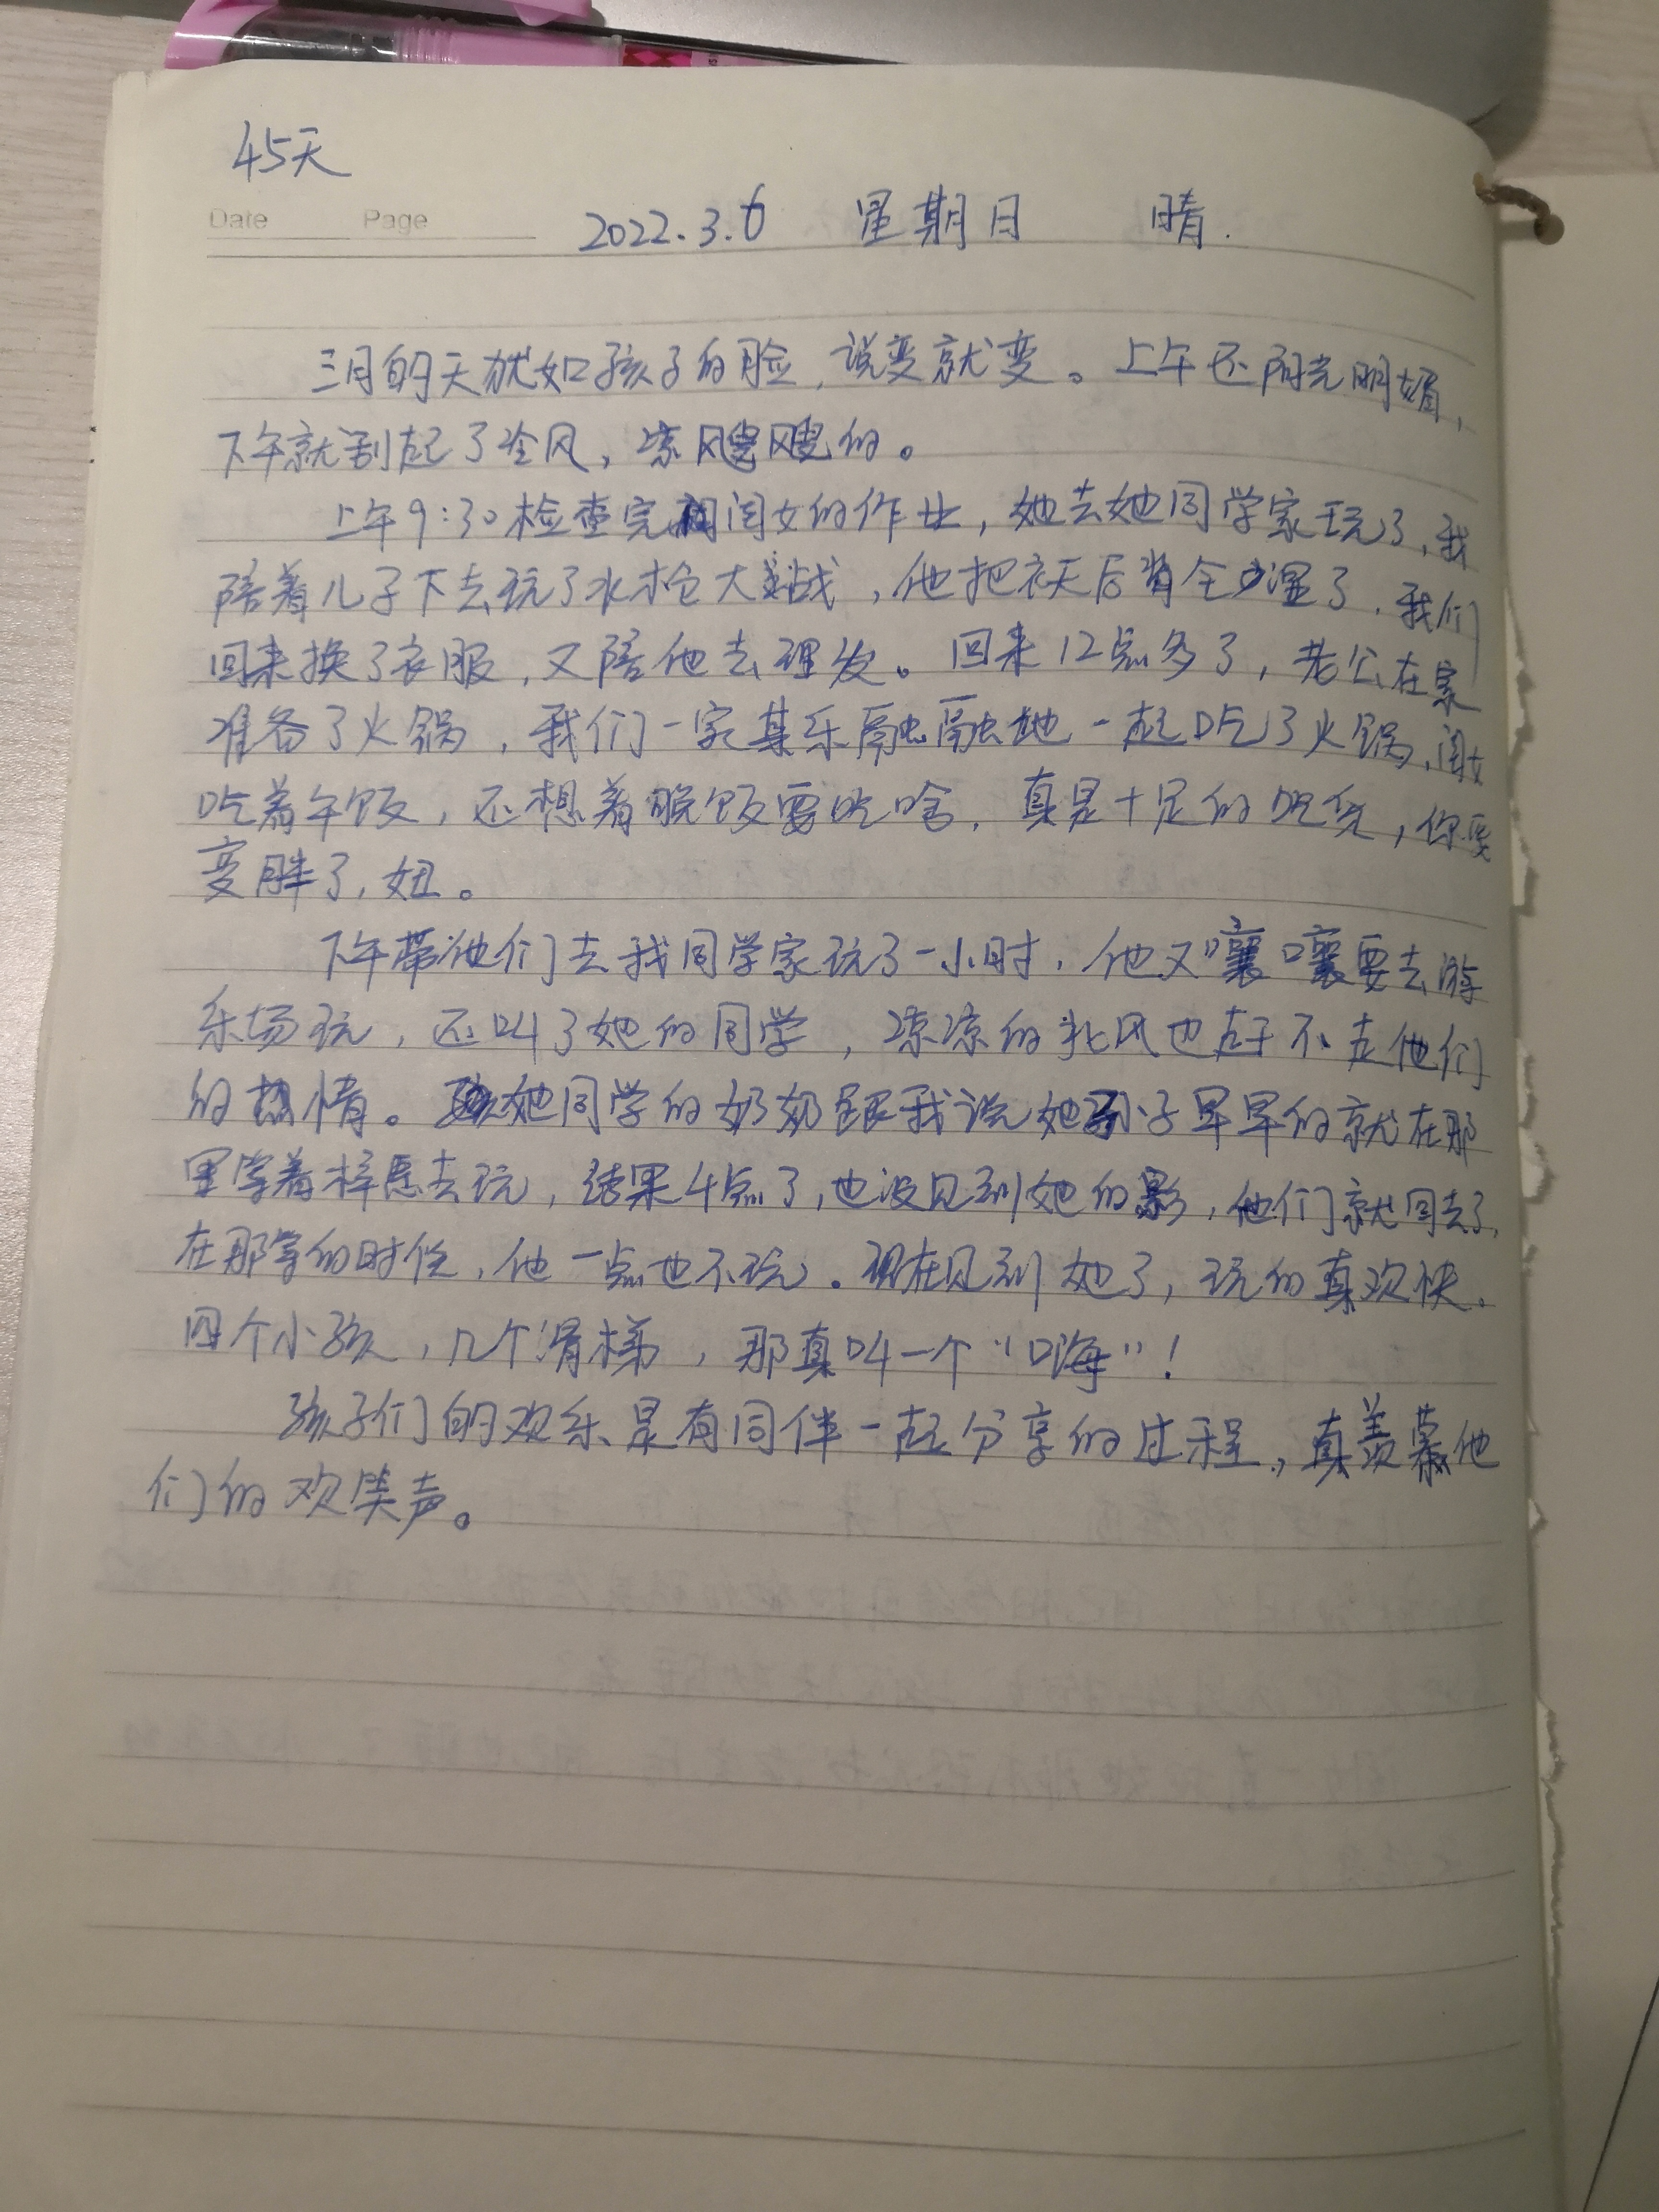 45天
Date Page 2022.3.6 星期日 晴.
三月的天犹如孩子的脸,说变就变。上午还阳光明媚,
下午就刮起了冷风,凉飕飕的。
上午9:30检查完闺女的作业,她去她同学家玩了,我
陪着儿子下去玩了水枪大战,他把衣天后背全湿了,我们
回来换了衣服,又陪他去理发。回来12点多了,老公在家
准备了火锅,我们一家其乐融融地一起吃了火锅,闺女
吃着午饭,还想着晚饭要吃啥,真是十足的吃货,你要
变胖了,妞。
下午带他们去我同学家玩了一小时,他又嚷嚷要去游
乐场玩,还叫了她的同学,凉凉的北风也赶不走他们
的热情。她同学的奶奶跟我说她孙子早早的就在那
里等着梓 去玩,结果4点了,也没见到她的影,他们就回去了,
在那等的时候,他一点也不玩。现在见到她了,玩的真欢快。
四个小孩,几个滑梯,那真叫一个“嗨”!
孩子们的欢乐是有同伴一起分享的过程,真羡慕他
们的欢笑声。